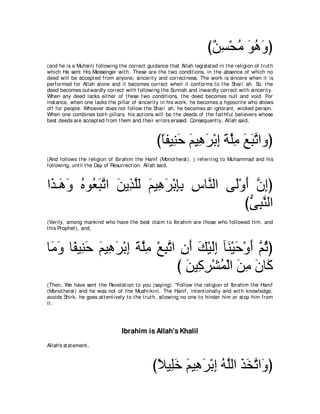 (وَهُوَ مُحْسِنٌ)
(and he is a Muhsin) following the correct guidance that Allah legislated in the religion of truth
which He sent His Messenger with. These are the two conditions, in the absence of which no
deed will be accepted from anyone; sincerity and correctness. The work is sincere when it is
performed for Allah alone and it becomes correct when it conforms to the Shari`ah. So, the
deed becomes outwardly correct with following the Sunnah and inwardly correct with sincerity.
When any deed lacks either of these two conditions, the deed becomes null and void. For
instance, when one lacks the pillar of sincerity in his work, he becomes a hypocrite who shows
off for people. Whoever does not follow the Shari`ah, he becomes an ignorant, wicked person.
When one combines both pillars, his actions will be the deeds of the faithful believers whose
best deeds are accepted from them and their errors erased. Consequently, Allah said,
(واتَّبَعَ مِلَّةَ إِبْرَهِيمَ حَنِيفاً)
(And follows the religion of Ibrahim the Hanif (Monotheist). ) referring to Muhammad and his
following, until the Day of Resurrection. Allah said,
(إِنَّ أَوْلَى النَّاسِ بِإِبْرَهِيمَ لَلَّذِينَ اتَّبَعُوهُ وَهَـذَا
النَّبِىُّ)
(Verily, among mankind who have the best claim to Ibrahim are those who followed him, and
this Prophet), and,
(ثُمَّ أَوْحَيْنَآ إِلَيْكَ أَنِ اتَّبِعْ مِلَّةَ إِبْرَهِيمَ حَنِيفًا وَمَا
كَانَ مِنَ الْمُشْرِكِينَ )
(Then, We have sent the Revelation to you (saying): "Follow the religion of Ibrahim the Hanif
(Monotheist) and he was not of the Mushrikin). The Hanif, intentionally and with knowledge,
avoids Shirk, he goes attentively to the truth, allowing no one to hinder him or stop him from
it.
Ibrahim is Allah's Khalil
Allah's statement,
(وَاتَّخَذَ اللَّهُ إِبْرَهِيمَ خَلِيلاً)